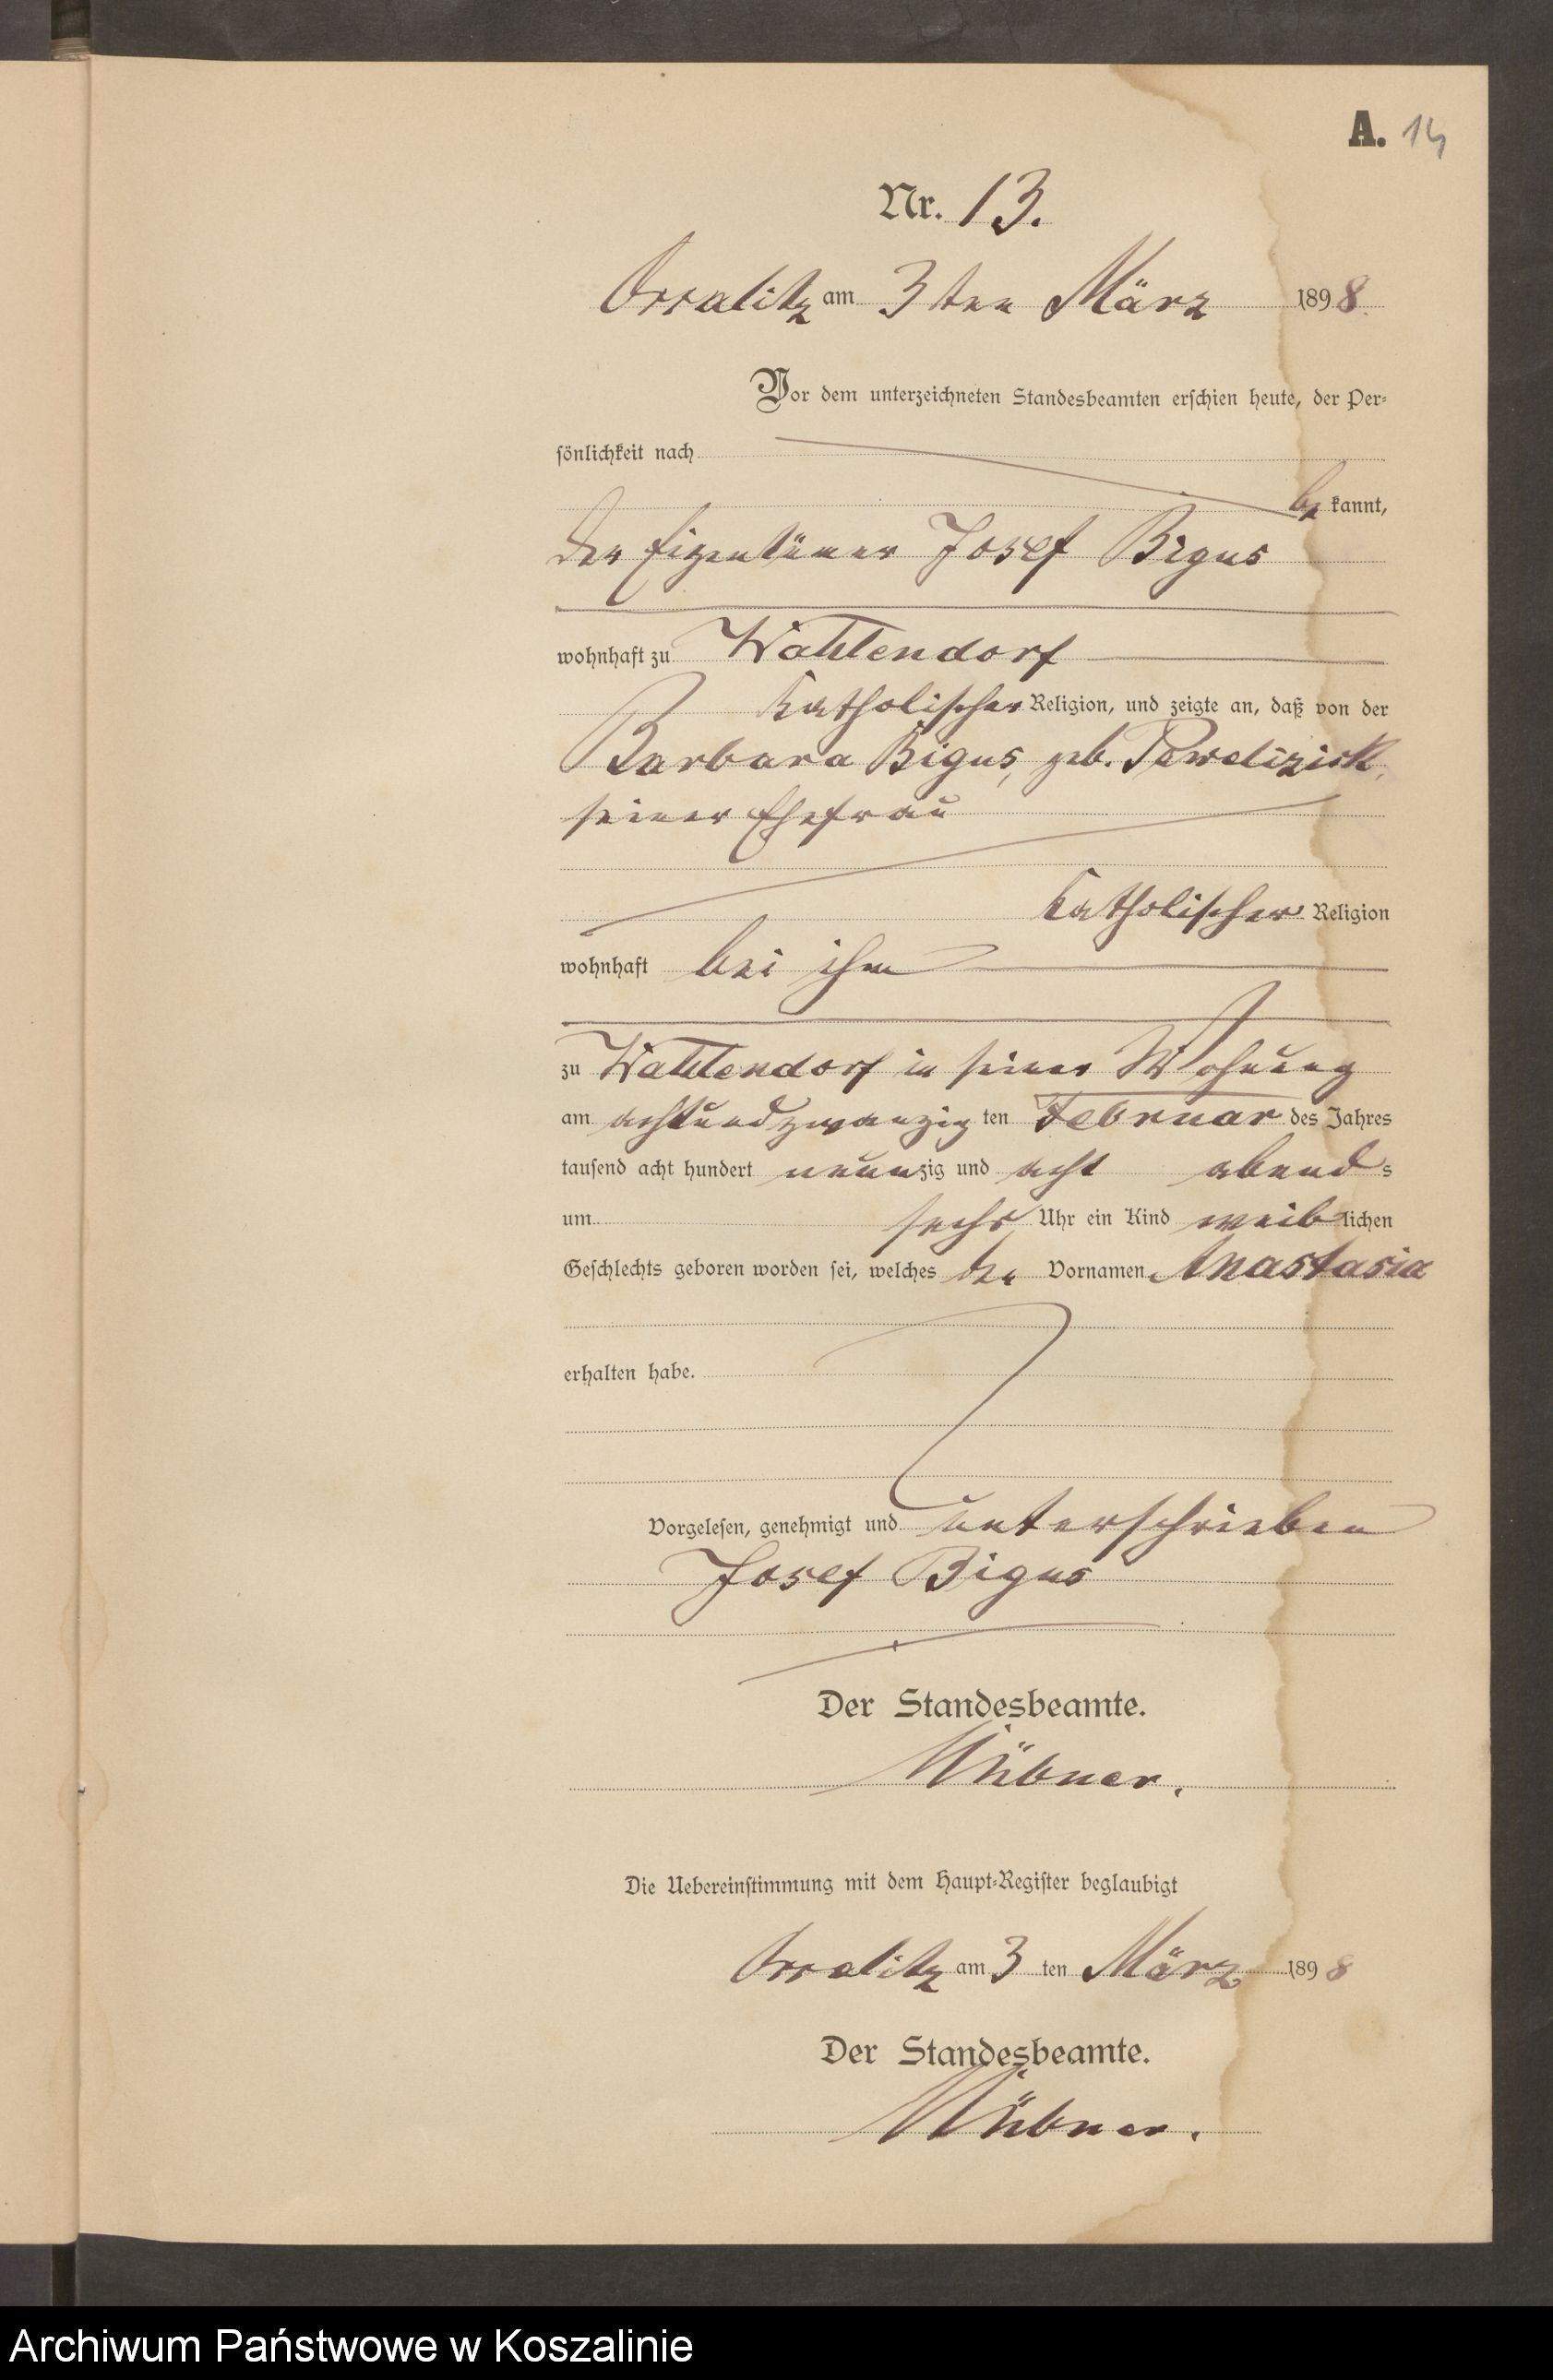 A. 14
Nr. 13.
Ossalitz am 3ten März 1898.
Vor dem unterzeichneten Standesbeamten erschien heute, der Per-
sönlichkeit nach
be kannt,
der Eigentümer Josef Bigus
wohnhaft zu Wahlendorf
katholischer Religion, und zeigte an, daß von der
Barbara Bigus, geb.
seiner Ehefrau
katholischer Religion
wohnhaft bei ihm
zu Wahlendorf in seiner Wohnung
am achtundzwanzig ten Februar des Jahres
tausend acht hundert neunzig und acht abends
um sechs Uhr ein Kind weiblichen
Geschlechts geboren worden sei, welches den Vornamen Anastasia
erhalten habe.
Vorgelesen, genehmigt und unterschrieben
Josef Bigus
Der Standesbeamte.
Hübner.
Die Uebereinstimmung mit dem Haupt-Register beglaubigt
Ossalitz am 3 ten März 1898
Der Standesbeamte.
Hübner.
Archiwum Państwowe w Koszalinie